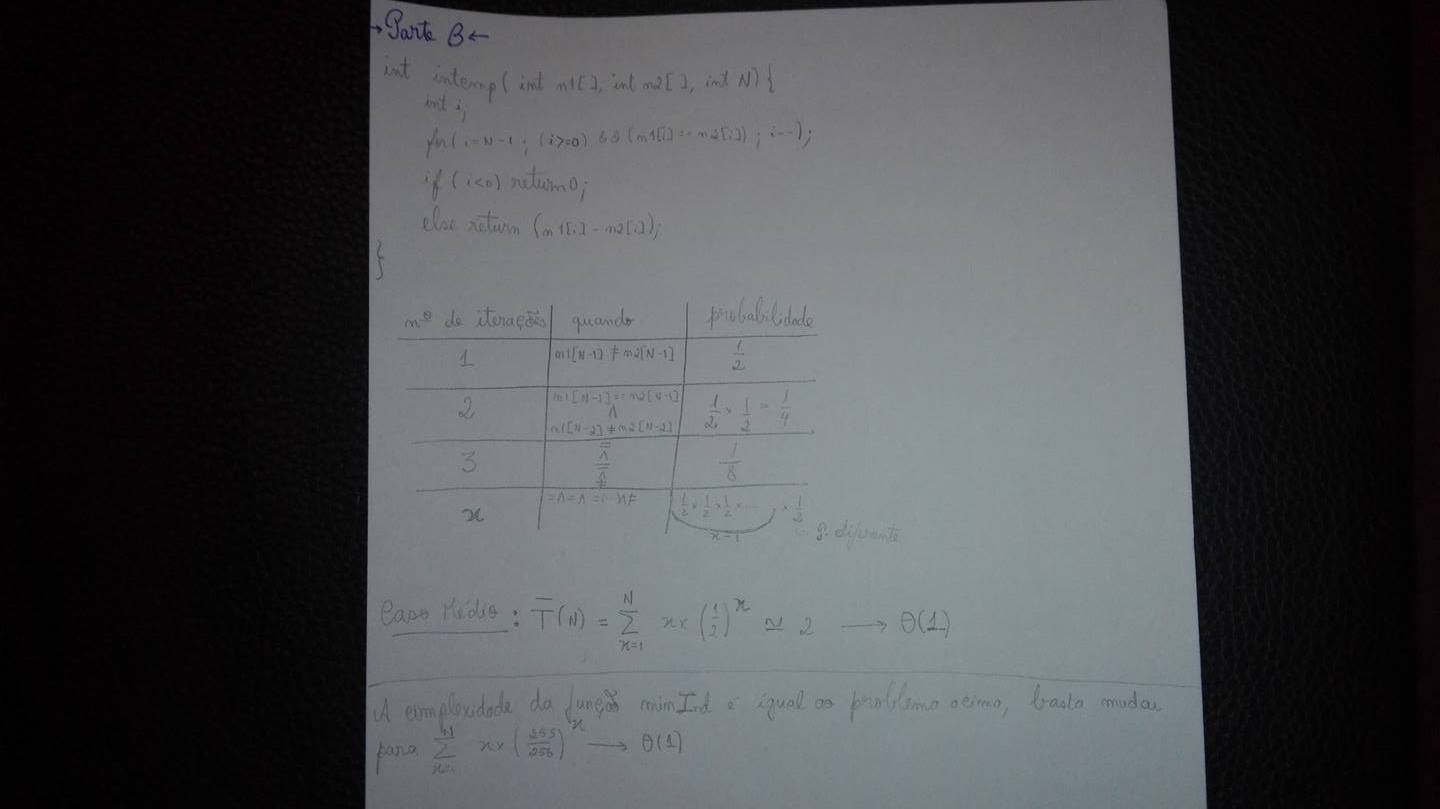 →Parte B←
int intemp( int n1[ ], int n2[ ], int N) {
int i;
for( i=N-1 ; (i>=0) && (n1[i]==n2[i]) ; i--);
if (i<0) return 0;
else return (n1[i] - n2[i]);
}
nº de iterações quando probabilidade
1 n1[N-1] ≠ n2[N-1] 1/2
2 n1[N-1]==n2[N-1] ∧ n1[N-2]≠n2[N-2] 1/2 × 1/2 = 1/4
3 = ∧ = ∧ ≠ 1/8
x =∧=∧=∧...∧≠ 1/2 × 1/2 × 1/2 × ... × 1/2
x-1 diferente
Caso Médio : T̅(N) = ∑ x=1 N x× (1/2)^x ≃ 2 → Θ(1)
A complexidade da função minInd é igual ao problema acima, basta mudar
para ∑ x=1 x× (255/256)^x → Θ(1)